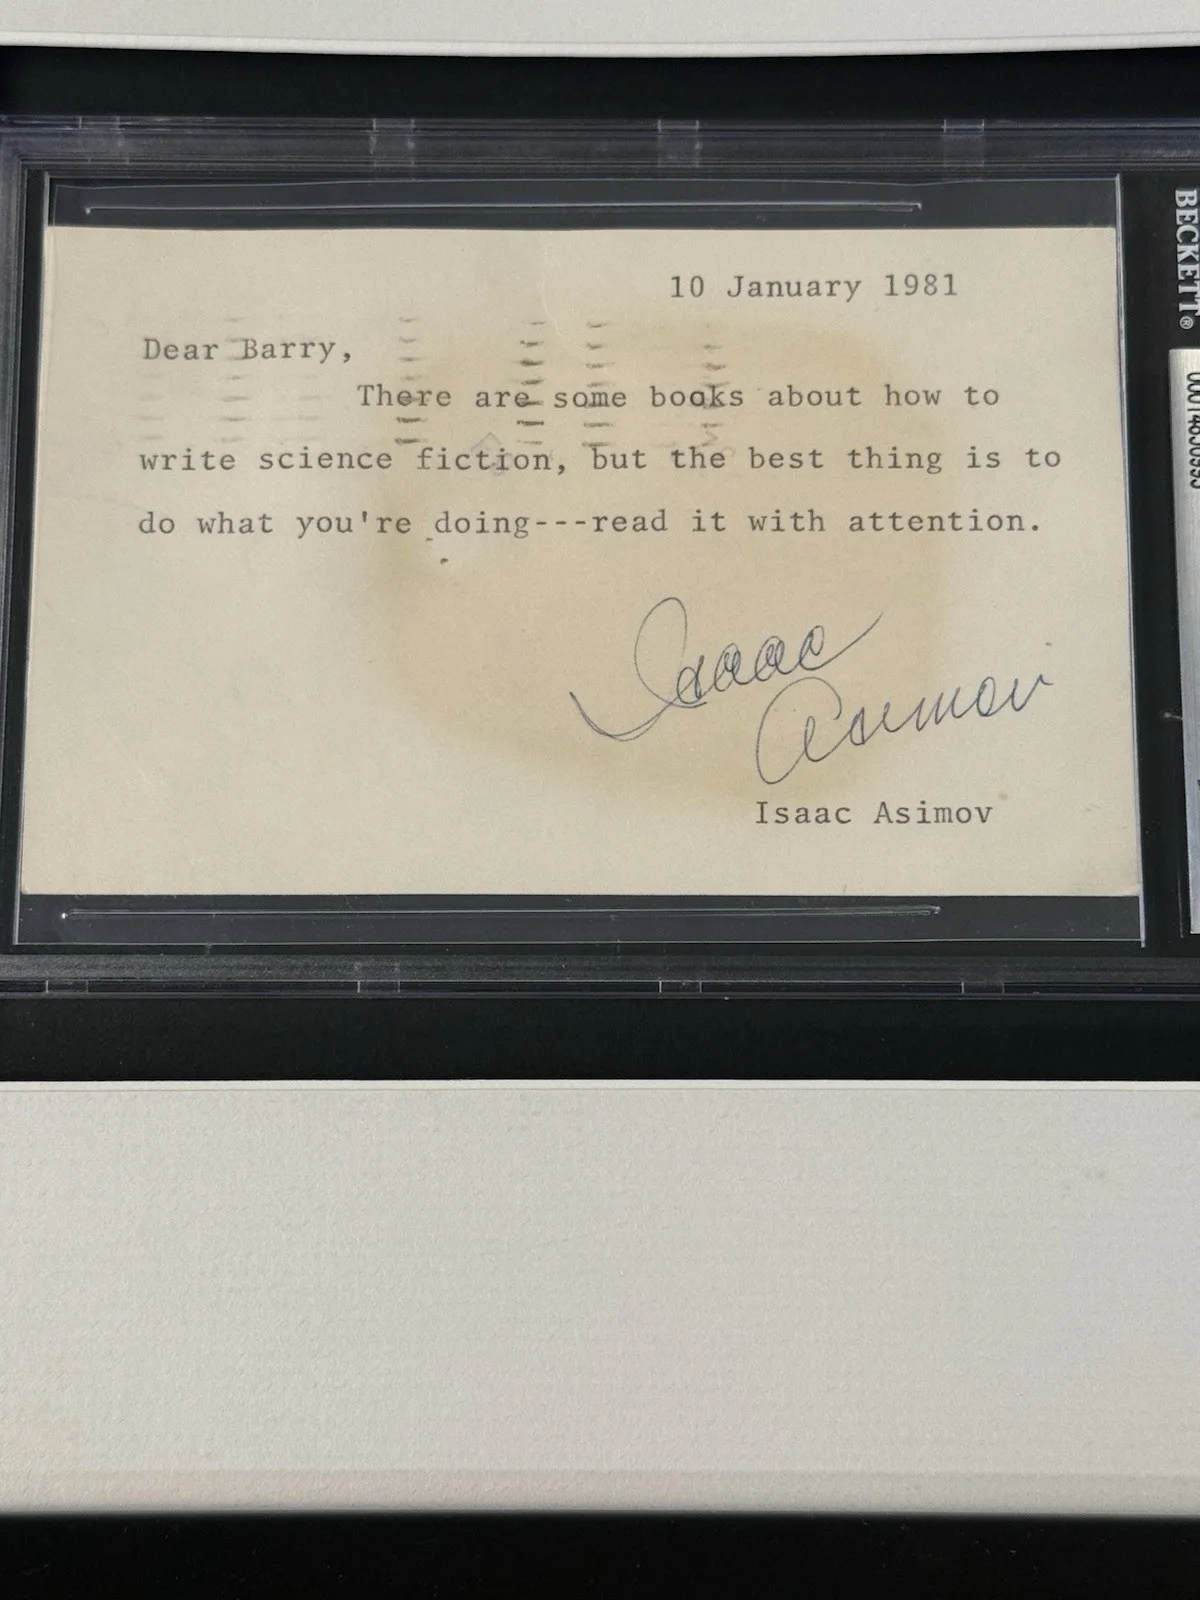 10 January 1981
Dear Barry,
There are some books about how to
write science fiction, but the best thing is to
do what you're doing---read it with attention.
Isaac
Asimov
Isaac Asimov
BECKETT®